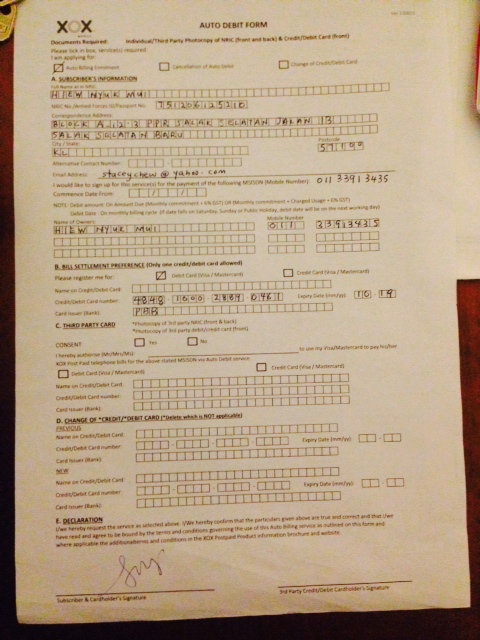 XOX
AUTO DEBIT FORM
Documents Required: Individual/Third Party Photocopy of NRIC (front and back) & Credit/Debit Card (front)
Please tick in box, service(s) required:
I am applying for:
Auto Billing Enrolment Cancellation of Auto Debit Change of Credit/Debit Card
A. SUBSCRIBER'S INFORMATION
Full Name as in NRIC
HIEW NYUK MUI
NRIC No./Armed Forces ID/Passport No. 751206125210
Correspondence Address:
BLOCK A-12-3 PPR SALAK SELATAN JALAN 1B
SALAK SELATAN BARU
City / State: Postcode
KL 57100
Alternative Contact Number:
Email Address: staceychew@yahoo.com
I would like to sign up for this service(s) for the payment of the following MSISDN (Mobile Number) 01133913435
Commence Date From:
NOTE: Debit amount: On Amount Due (Monthly commitment + 6% GST) OR (Monthly commitment + Charged Usage + 6% GST)
Debit Date : On monthly billing cycle (If date falls on Saturday, Sunday or Public Holiday, debit date will be on the next working day)
Name of Owners: Mobile Number
HIEW NYUK MUI 011 33913435
B. BILL SETTLEMENT PREFERENCE (Only one credit/debit card allowed)
Please register me for: Debit Card (Visa / Mastercard) Credit Card (Visa / Mastercard)
Name on Credit/Debit Card:
Credit/Debit Card number: 4848-1000-2889-0961 Expiry Date (mm/yy): 10-19
Card Issuer (Bank): PBB
C. THIRD PARTY CARD *Photocopy of 3rd party NRIC (front & back)
*Photocopy of 3rd party debit/credit card (front)
CONSENT: Yes No
I hereby authorise (Mr/Mrs/Ms) to use my Visa/Mastercard to pay his/her
XOX Post Paid telephone bills for the above stated MSISDN via Auto Debit service.
Debit Card (Visa / Mastercard) Credit Card (Visa / Mastercard)
Name on Credit/Debit Card:
Credit/Debit Card number:
Card Issuer (Bank):
D. CHANGE OF *CREDIT/*DEBIT CARD (*Delete which is NOT applicable)
PREVIOUS
Name on Credit/Debit Card:
Credit/Debit Card number: Expiry Date (mm/yy):
Card Issuer (Bank):
NEW
Name on Credit/Debit Card:
Credit/Debit Card number: Expiry Date (mm/yy):
Card Issuer (Bank):
E. DECLARATION
I/we hereby request the service as selected above. I/We hereby confirm that the particulars given above are true and correct and that I/we
have read and agree to be bound by the terms and conditions governing the use of this Auto Billing service as outlined on this form and
where applicable the additional terms and conditions in the XOX Postpaid Product information brochure and website.
Subscriber & Cardholder's Signature 3rd Party Credit/Debit Cardholder's Signature